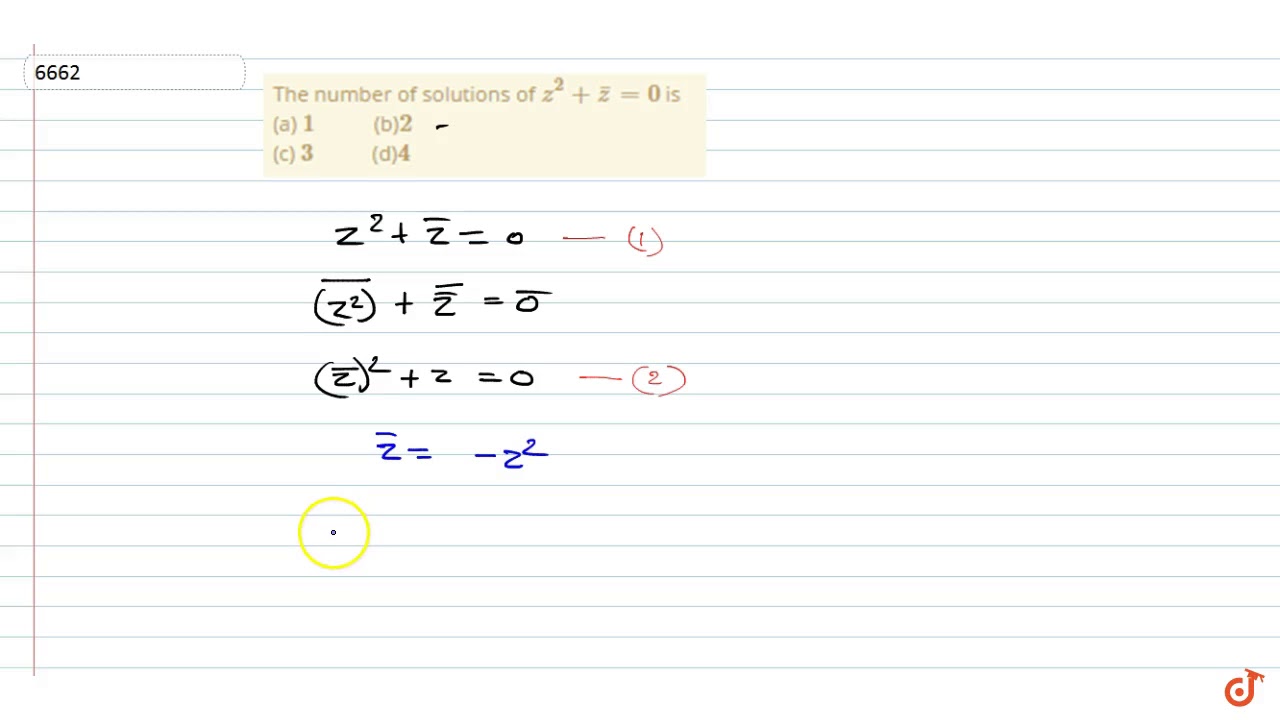 6662
The number of solutions of z² + z̄ = 0 is
(a) 1 (b)2 -
(c) 3 (d)4
z² + z̄ = 0 — (1)
\overline{(z²)} + \overline{z̄} = \overline{0}
(z̄)² + z = 0 — (2)
z̄ = - z²